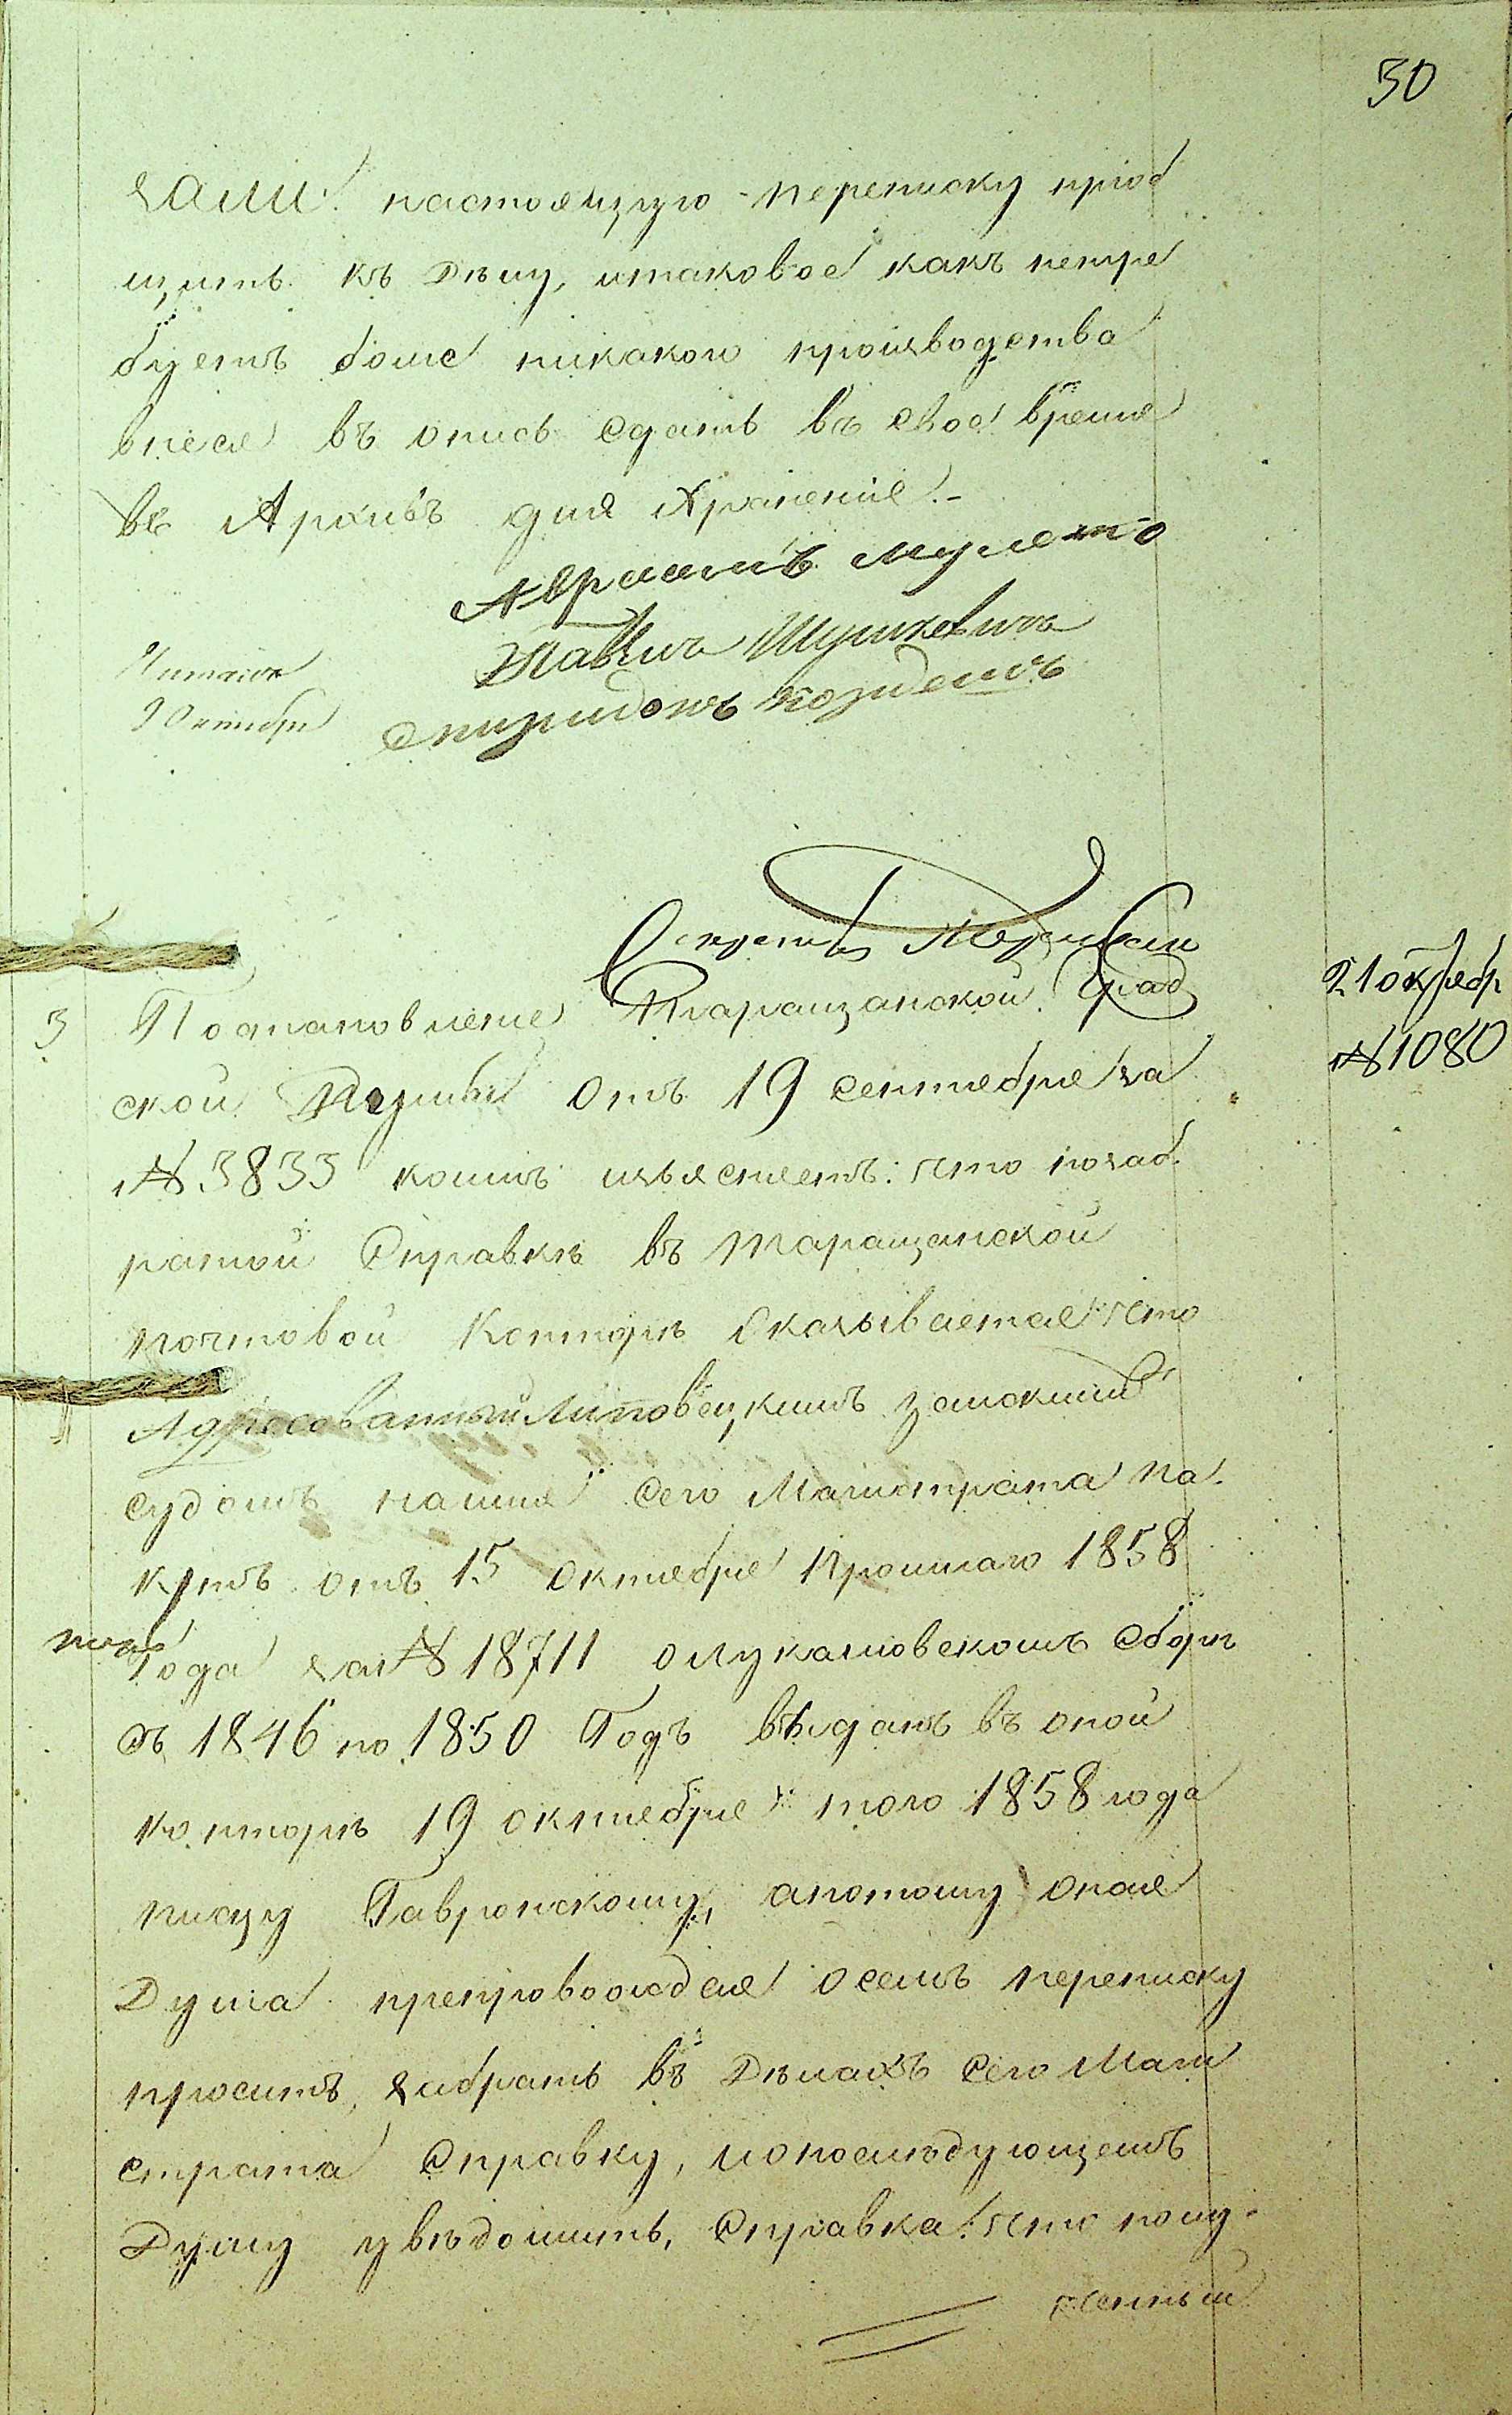 50
зали: настоящую переписку пріоб
щить къ дѣлу, итаковое какъ нетре
буетъ более никакого производства
внеся въ опись сдать въ свое время
въ Архивъ для храненія.-
Авраамъ
Павелъ Шулкевичъ
Спиридонъ
Читалъ
9 Октября
Секретарь
21 октябр
№ 1080
3 Постановленіе Таращанской Град
ской Думы отъ 19 сентября за
№ 3833 коимъ изъясняетъ: что позаб
ранной Справкѣ въ Таращанской
почтовой Конторѣ оказывается: что
Адресованный Липовецкимъ земскимъ
судомъ наимя сего Магистрата па-
кетъ отъ 15 октября прошлаго 1858
года за № 18711 о лукашовскомъ сборѣ
съ 1846 по 1850 Годъ выданъ въ оной
конторѣ 19 октября того 1858 года
писцу Гавронскому, апотому оная
Дума препровождая осемъ переписку
проситъ, забрать въ Дѣлахъ сего Маги
страта Справку, ипослѣдующемъ
Думу увѣдомить, Справка: что полу-
ченный